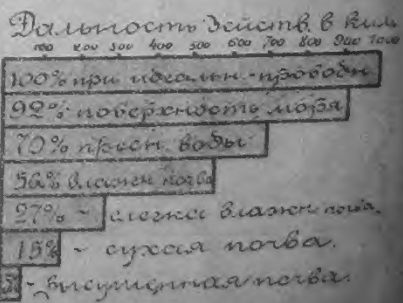 Дальность действ. в кил.
100 200 300 400 500 600 700 800 900 1000
100% при идеальн. провод.
92% поверхность моря
70% пресн. воды
56% влажн. почва
27% - слегка влажн. почва.
15% - сухая почва.
- высушенная почва.